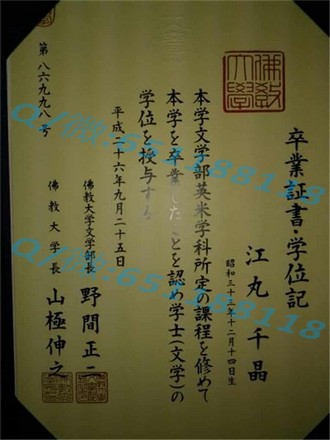 卒業証書・学位記
江丸千晶
昭和三十三年十二月十四日生
本学文学部英米学科所定の課程を修めて
本学を卒業したことを認め学士(文学)の
学位を授与する
平成二十六年九月二十五日
佛教大学文学部長 野間正二
佛教大学長 山極伸之
第八六九九八号
佛教大學
Q/微:651188118
Q/微:651188118